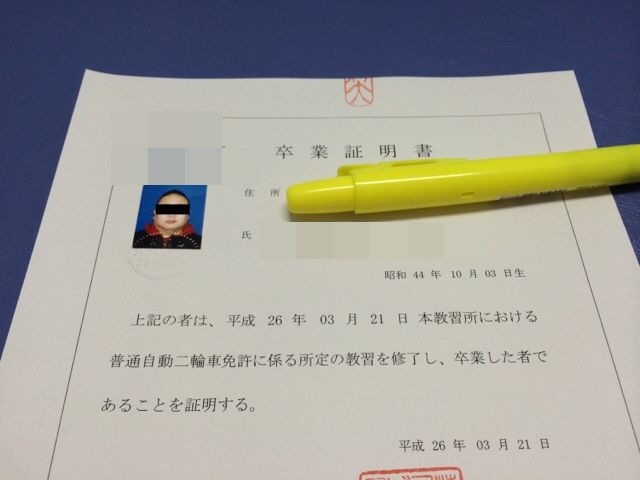 卒業証明書
住所
氏
昭和 44 年 10 月 03 日生
上記の者は、平成 26 年 03 月 21 日 本教習所における
普通自動二輪車免許に係る所定の教習を修了し、卒業した者で
あることを証明する。
平成 26 年 03 月 21 日